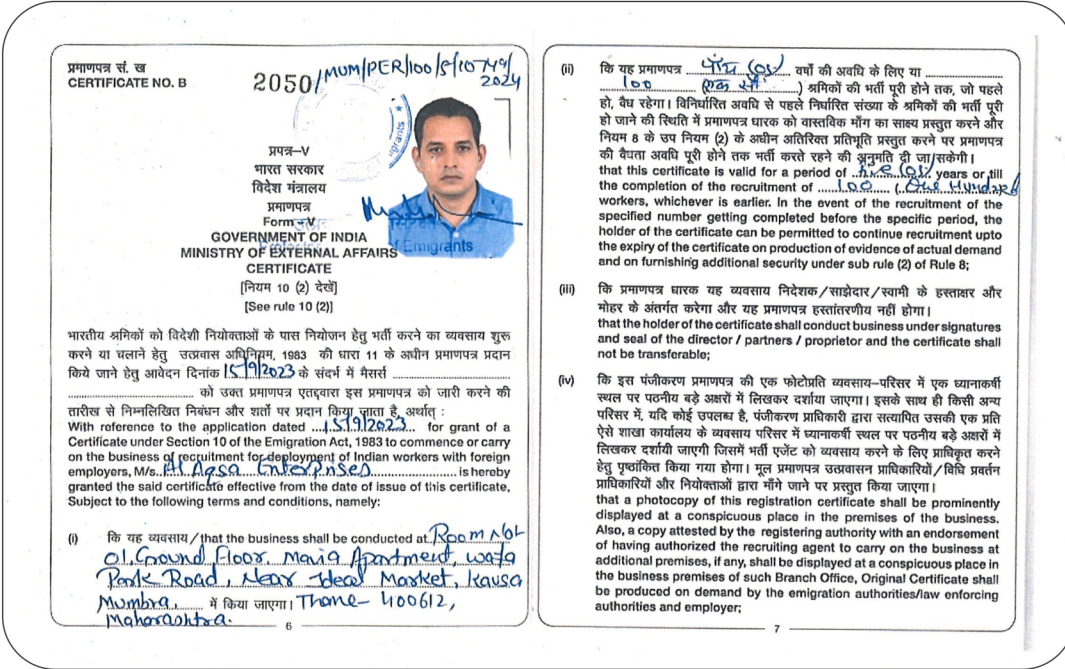 प्रमाणपत्र सं. ख
CERTIFICATE NO. B
2050/MUM/PER/100/5/10749/
2024
प्रपत्र–V
भारत सरकार
विदेश मंत्रालय
प्रमाणपत्र
Form –V
GOVERNMENT OF INDIA
MINISTRY OF EXTERNAL AFFAIRS
of Emigrants
CERTIFICATE
[नियम 10 (2) देखें]
[See rule 10 (2)]
भारतीय श्रमिकों को विदेशी नियोक्ताओं के पास नियोजन हेतु भर्ती करने का व्यवसाय शुरू
करने या चलाने हेतु उत्प्रवास अधिनियम, 1983 की धारा 11 के अधीन प्रमाणपत्र प्रदान
किये जाने हेतु आवेदन दिनांक 15/9/2023 के संदर्भ में मैसर्स
को उक्त प्रमाणपत्र एतद्द्वारा इस प्रमाणपत्र को जारी करने की
तारीख से निम्नलिखित निबंधन और शर्तों पर प्रदान किया जाता है, अर्थात् :
With reference to the application dated ...15/9/2023... for grant of a
Certificate under Section 10 of the Emigration Act, 1983 to commence or carry
on the business of recruitment for deployment of Indian workers with foreign
employers, M/s. Al Aqsa Enterprises is hereby
granted the said certificate effective from the date of issue of this certificate,
Subject to the following terms and conditions, namely:
(i) कि यह व्यवसाय/that the business shall be conducted at Room No.
01, Ground Floor, Maria Apartment, Wafa
Park Road, Near Ideal Market, Kausa
Mumbra, में किया जाएगा। Thane- 400612,
Maharashtra.
6
(ii) कि यह प्रमाणपत्र पाँच (05) वर्षों की अवधि के लिए या
100 (एक सौ) श्रमिकों की भर्ती पूरी होने तक, जो पहले
हो, वैध रहेगा। विनिर्धारित अवधि से पहले निर्धारित संख्या के श्रमिकों की भर्ती पूरी
हो जाने की स्थिति में प्रमाणपत्र धारक को वास्तविक माँग का साक्ष्य प्रस्तुत करने और
नियम 8 के उप नियम (2) के अधीन अतिरिक्त प्रतिभूति प्रस्तुत करने पर प्रमाणपत्र
की वैधता अवधि पूरी होने तक भर्ती करते रहने की अनुमति दी जा सकेगी।
that this certificate is valid for a period of ..five (05).. years or till
the completion of the recruitment of ...100... (..One Hundred
workers, whichever is earlier. In the event of the recruitment of the
specified number getting completed before the specific period, the
holder of the certificate can be permitted to continue recruitment upto
the expiry of the certificate on production of evidence of actual demand
and on furnishing additional security under sub rule (2) of Rule 8;
(iii) कि प्रमाणपत्र धारक यह व्यवसाय निदेशक/साझेदार/स्वामी के हस्ताक्षर और
मोहर के अंतर्गत करेगा और यह प्रमाणपत्र हस्तांतरणीय नहीं होगा।
that the holder of the certificate shall conduct business under signatures
and seal of the director / partners / proprietor and the certificate shall
not be transferable;
(iv) कि इस पंजीकरण प्रमाणपत्र की एक फोटोप्रति व्यवसाय–परिसर में एक ध्यानाकर्षी
स्थल पर पठनीय बड़े अक्षरों में लिखकर दर्शाया जाएगा। इसके साथ ही किसी अन्य
परिसर में, यदि कोई उपलब्ध है, पंजीकरण प्राधिकारी द्वारा सत्यापित उसकी एक प्रति
ऐसे शाखा कार्यालय के व्यवसाय परिसर में ध्यानाकर्षी स्थल पर पठनीय बड़े अक्षरों में
लिखकर दर्शायी जाएगी जिसमें भर्ती एजेंट को व्यवसाय करने के लिए प्राधिकृत करने
हेतु पृष्ठांकित किया गया होगा। मूल प्रमाणपत्र उत्प्रवासन प्राधिकारियों/विधि प्रवर्तन
प्राधिकारियों और नियोक्ताओं द्वारा माँगे जाने पर प्रस्तुत किया जाएगा।
that a photocopy of this registration certificate shall be prominently
displayed at a conspicuous place in the premises of the business.
Also, a copy attested by the registering authority with an endorsement
of having authorized the recruiting agent to carry on the business at
additional premises, if any, shall be displayed at a conspicuous place in
the business premises of such Branch Office, Original Certificate shall
be produced on demand by the emigration authorities/law enforcing
authorities and employer;
7